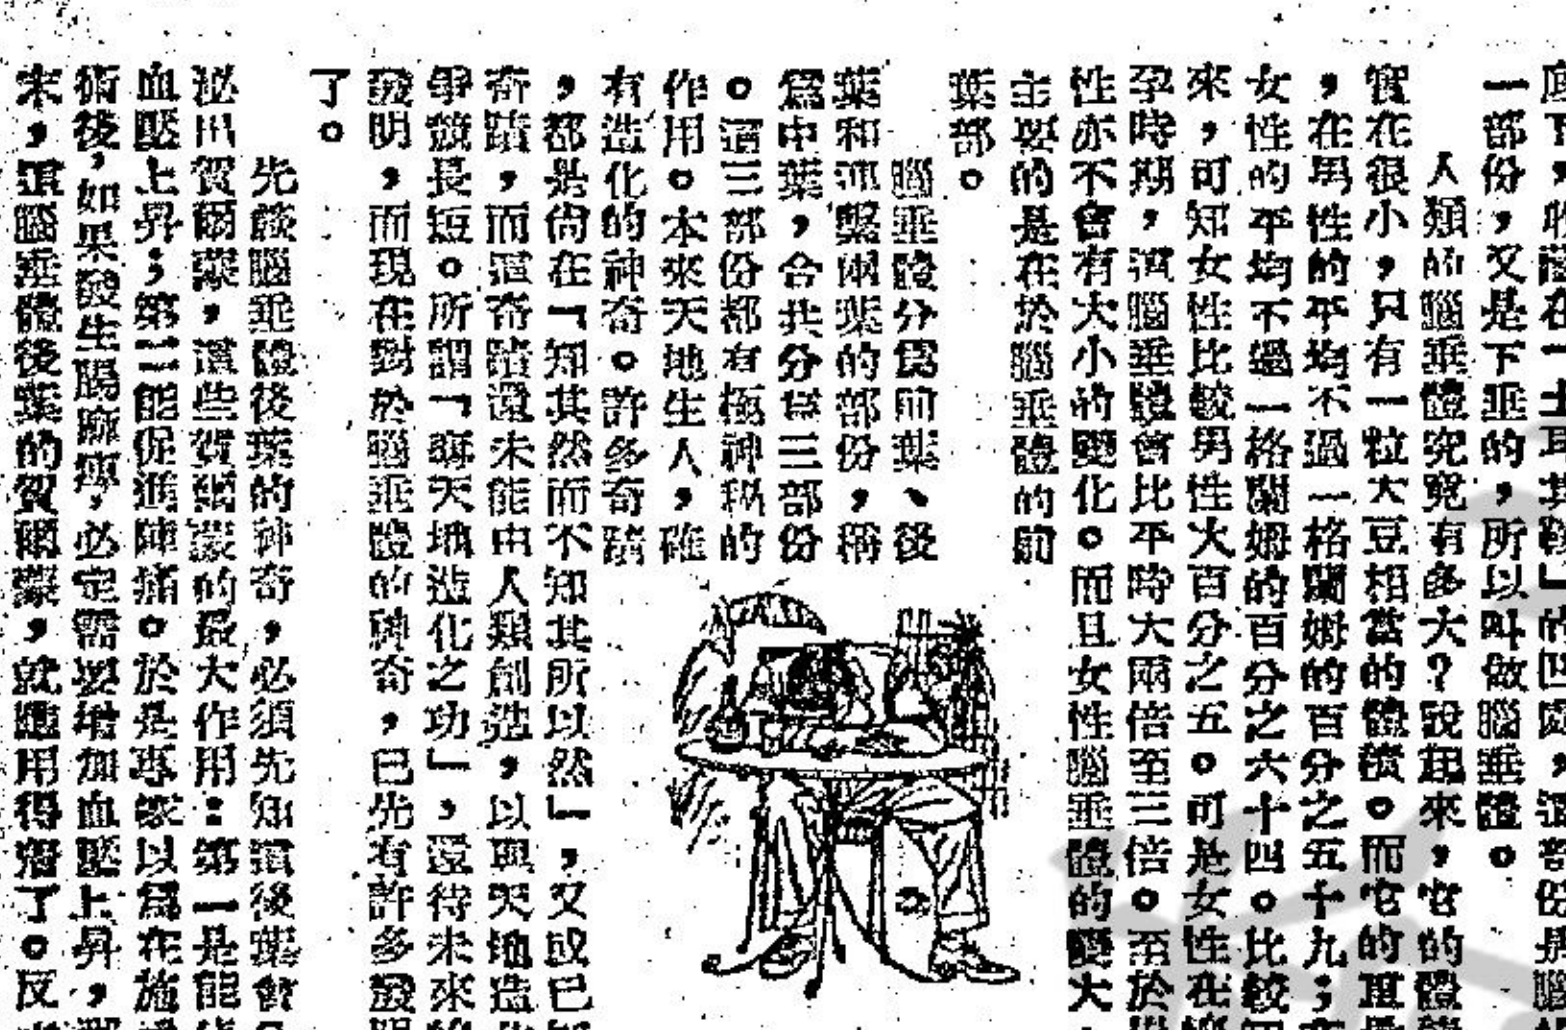 底下，收藏在「土耳其鞍」的凹處，這部份是腦
一部份，又是下垂的，所以叫做腦垂體。
人類的腦垂體究竟有多大？說起來，它的體積
實在很小，只有一粒大豆相當的體積。而它的重量
，在男性的平均不過一格蘭姆的百分之五十九；在
女性的平均不過一格蘭姆的百分之六十四。比較
來，可知女性比較男性大百分之五。可是女性在
孕時期，這腦垂體會比平時大兩倍至三倍。至於
性亦不會有大小的變化。而且女性腦垂體的變大
主要的是在於腦垂體的前
葉部。
腦垂體分為前葉、後
葉和連繫兩葉的部份，稱
為中葉，合共分為三部份
。這三部份都有極神秘的
作用。本來天地生人，確
有造化的神奇。許多奇蹟
，都是尚在「知其然而不知其所以然」，又或已
奇蹟，而這奇蹟還未能由人類創造，以與天地造
爭競長短。所謂「奪天地造化之功」，還待未來
發明，而現在對於腦垂體的神奇，已先有許多發
了。
先談腦垂體後葉的神奇，必須先知這後葉會
泌出賀爾蒙，這些賀爾蒙的最大作用：第一是能
血壓上昇；第二能促進陣痛。於是專家以為在施
術後，如果發生腸麻痺，必定需要增加血壓上昇，
末，這腦垂體後葉的賀爾蒙，就應用得着了。反